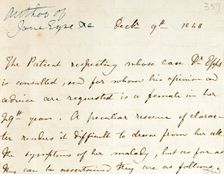 Author of
Jane Eyre &c
Decbr 9th 1848
337
The Patient respecting whose case Dr Epps
is consulted, and for whom his opinion and
advice are requested is a female in her
29th year. A peculiar reserve of charac-
ter renders it difficult to draw from her all
the symptoms of her malady, but as far as
they can be ascertained they are as follows: